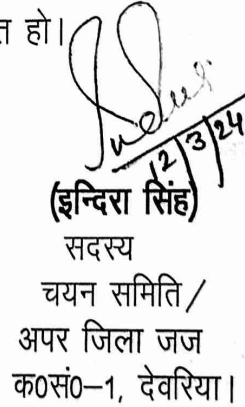 हो।
12/3/24
(इन्दिरा सिंह)
सदस्य
चयन समिति/
अपर जिला जज
क0सं0–1, देवरिया।